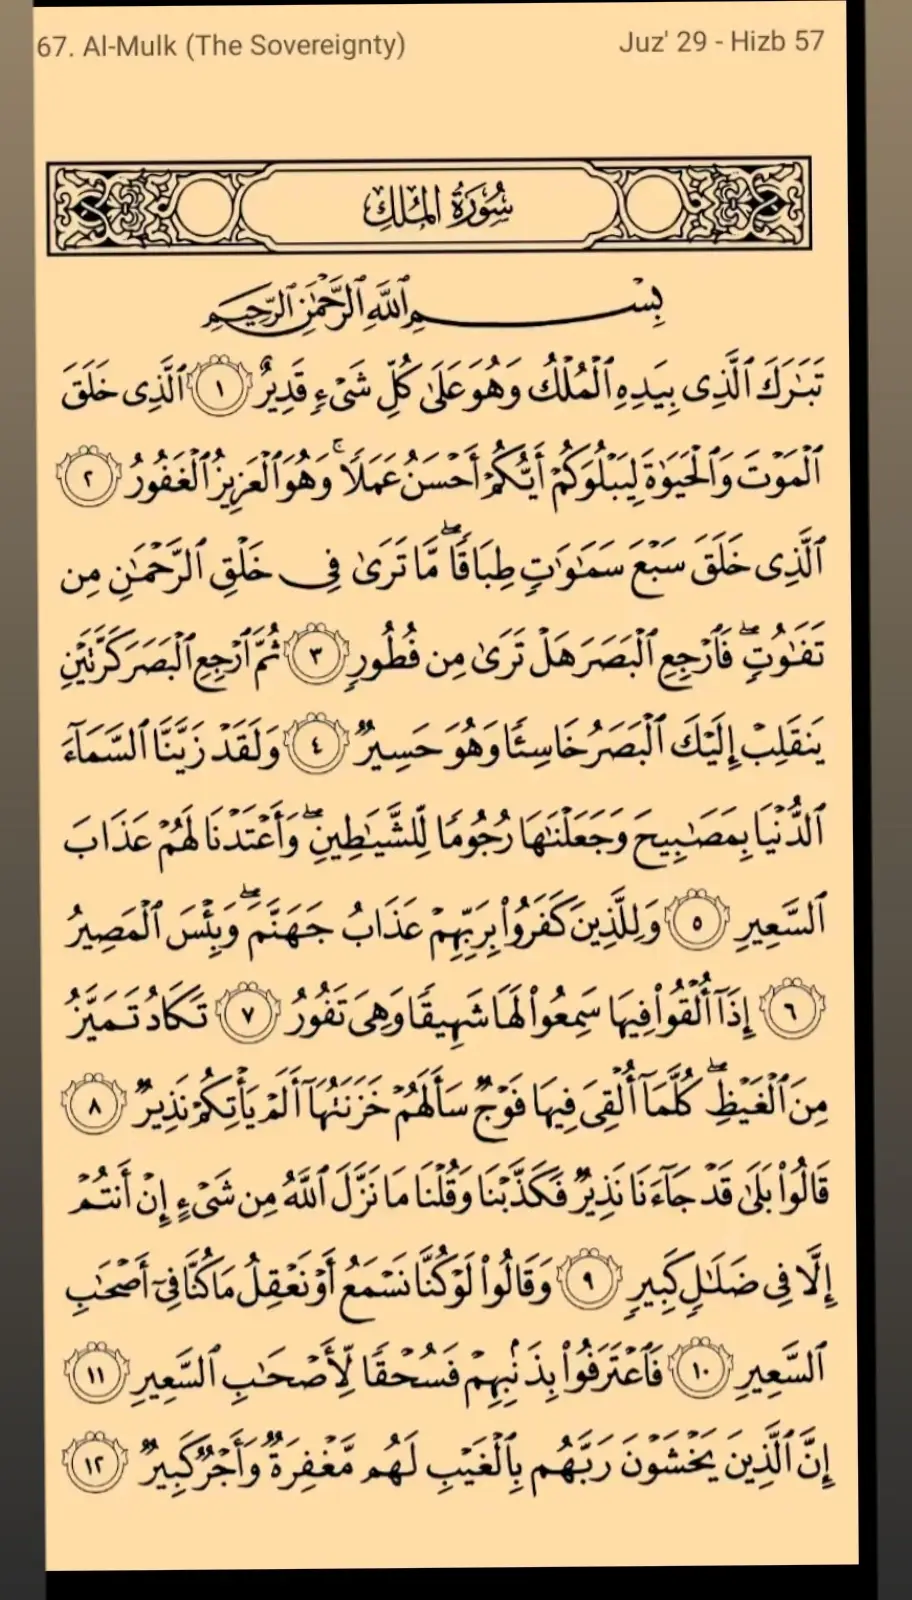 67. Al-Mulk (The Sovereignty) Juz' 29 - Hizb 57
سُورَةُ المُلكِ
بِسۡمِ ٱللَّهِ ٱلرَّحۡمَٰنِ ٱلرَّحِيمِ
تَبَٰرَكَ ٱلَّذِى بِيَدِهِ ٱلۡمُلۡكُ وَهُوَ عَلَىٰ كُلِّ شَىۡءٍ قَدِيرٌ ١ ٱلَّذِى خَلَقَ
ٱلۡمَوۡتَ وَٱلۡحَيَوٰةَ لِيَبۡلُوَكُمۡ أَيُّكُمۡ أَحۡسَنُ عَمَلًاۚ وَهُوَ ٱلۡعَزِيزُ ٱلۡغَفُورُ ٢
ٱلَّذِى خَلَقَ سَبۡعَ سَمَٰوَٰتٍ طِبَاقًاۖ مَّا تَرَىٰ فِى خَلۡقِ ٱلرَّحۡمَٰنِ مِن
تَفَٰوُتٍۖ فَٱرۡجِعِ ٱلۡبَصَرَ هَلۡ تَرَىٰ مِن فُطُورٍ ٣ ثُمَّ ٱرۡجِعِ ٱلۡبَصَرَ كَرَّتَيۡنِ
يَنقَلِبۡ إِلَيۡكَ ٱلۡبَصَرُ خَاسِئًا وَهُوَ حَسِيرٌ ٤ وَلَقَدۡ زَيَّنَّا ٱلسَّمَآءَ
ٱلدُّنۡيَا بِمَصَٰبِيحَ وَجَعَلۡنَٰهَا رُجُومًا لِّلشَّيَٰطِينِۖ وَأَعۡتَدۡنَا لَهُمۡ عَذَابَ
ٱلسَّعِيرِ ٥ وَلِلَّذِينَ كَفَرُواْ بِرَبِّهِمۡ عَذَابُ جَهَنَّمَۖ وَبِئۡسَ ٱلۡمَصِيرُ
٦ إِذَآ أُلۡقُواْ فِيهَا سَمِعُواْ لَهَا شَهِيقًا وَهِىَ تَفُورُ ٧ تَكَادُ تَمَيَّزُ
مِنَ ٱلۡغَيۡظِۖ كُلَّمَآ أُلۡقِىَ فِيهَا فَوۡجٌ سَأَلَهُمۡ خَزَنَتُهَآ أَلَمۡ يَأۡتِكُمۡ نَذِيرٌ ٨
قَالُواْ بَلَىٰ قَدۡ جَآءَنَا نَذِيرٌ فَكَذَّبۡنَا وَقُلۡنَا مَا نَزَّلَ ٱللَّهُ مِن شَىۡءٍ إِنۡ أَنتُمۡ
إِلَّا فِى ضَلَٰلٍ كَبِيرٍ ٩ وَقَالُواْ لَوۡ كُنَّا نَسۡمَعُ أَوۡ نَعۡقِلُ مَا كُنَّا فِىٓ أَصۡحَٰبِ
ٱلسَّعِيرِ ١٠ فَٱعۡتَرَفُواْ بِذَنۢبِهِمۡ فَسُحۡقًا لِّأَصۡحَٰبِ ٱلسَّعِيرِ ١١
إِنَّ ٱلَّذِينَ يَخۡشَوۡنَ رَبَّهُم بِٱلۡغَيۡبِ لَهُم مَّغۡفِرَةٌ وَأَجۡرٌ كَبِيرٌ ١٢